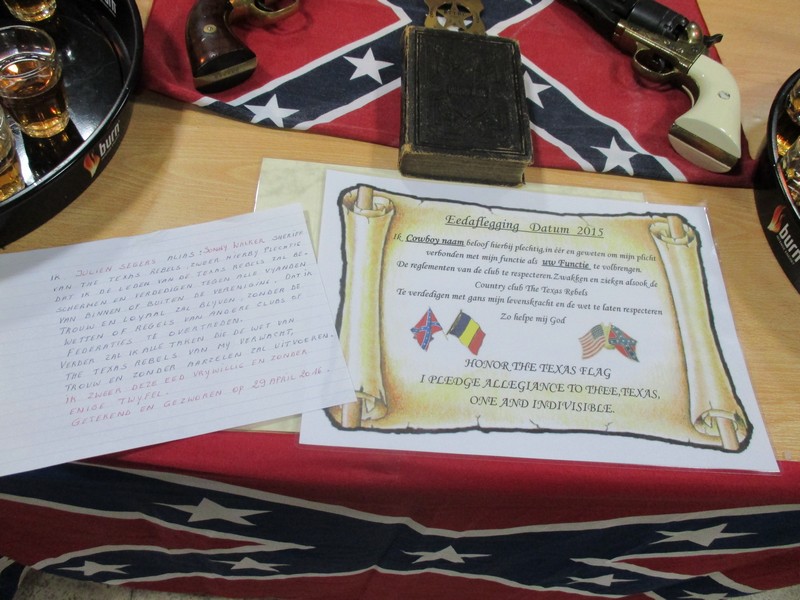 burn
burn
Eedaflegging Datum 2015
Ik Cowboy naam beloof hierbij plechtig,in eer en geweten om mijn plicht
verbonden met mijn functie als uw Functie te volbrengen.
De reglementen van de club te respecteren.Zwakken en zieken alsook de
Country club The Texas Rebels
Te verdedigen met gans mijn levenskracht en de wet te laten respecteren
Zo helpe mij God
HONOR THE TEXAS FLAG
I PLEDGE ALLEGIANCE TO THEE,TEXAS,
ONE AND INDIVISIBLE.
IK JULIEN SEGERS ALIAS SUNNY WALKER SHERIFF
VAN THE TEXAS REBELS ZWEER HIERBY PLECHTIG
DAT IK DE LEDEN VAN DE TEXAS REBELS ZAL BE-
SCHERMEN EN VERDEDIGEN TEGEN ALLE VYANDEN
VAN BINNEN OF BUITEN DE VERENIGING. DAT IK
TROUW EN LOYAAL ZAL BLYVEN. ZONDER DE
WETTEN OF REGELS VAN ANDERE CLUBS OF
FEDERATIES TE OVERTREDEN.
VERDER ZAL IK ALLE TAKEN DIE DE WET VAN
THE TEXAS REBELS VAN MY VERWACHT,
TROUW EN ZONDER AARZELEN ZAL UITVOEREN.
IK ZWEER DEZE EED VRYWILLIG EN ZONDER
ENIGE TWYFEL.
GETEKEND EN GEZWOREN OP 29 APRIL 2016.
burn